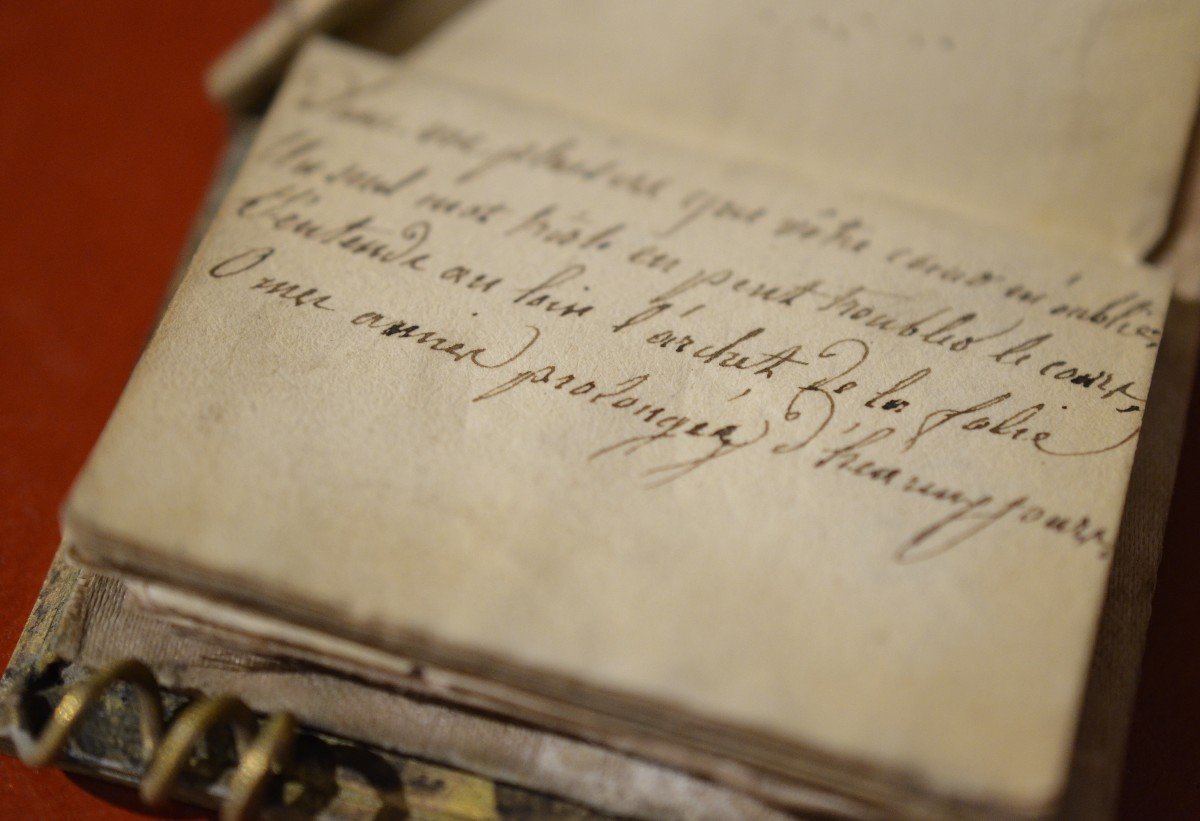 que vôtre cœur m'oublie,
Un seul mot triste en peut troubler le cours,
J'entends au loin l'archet de la folie
O mes amies prolongez d'heureux jours,